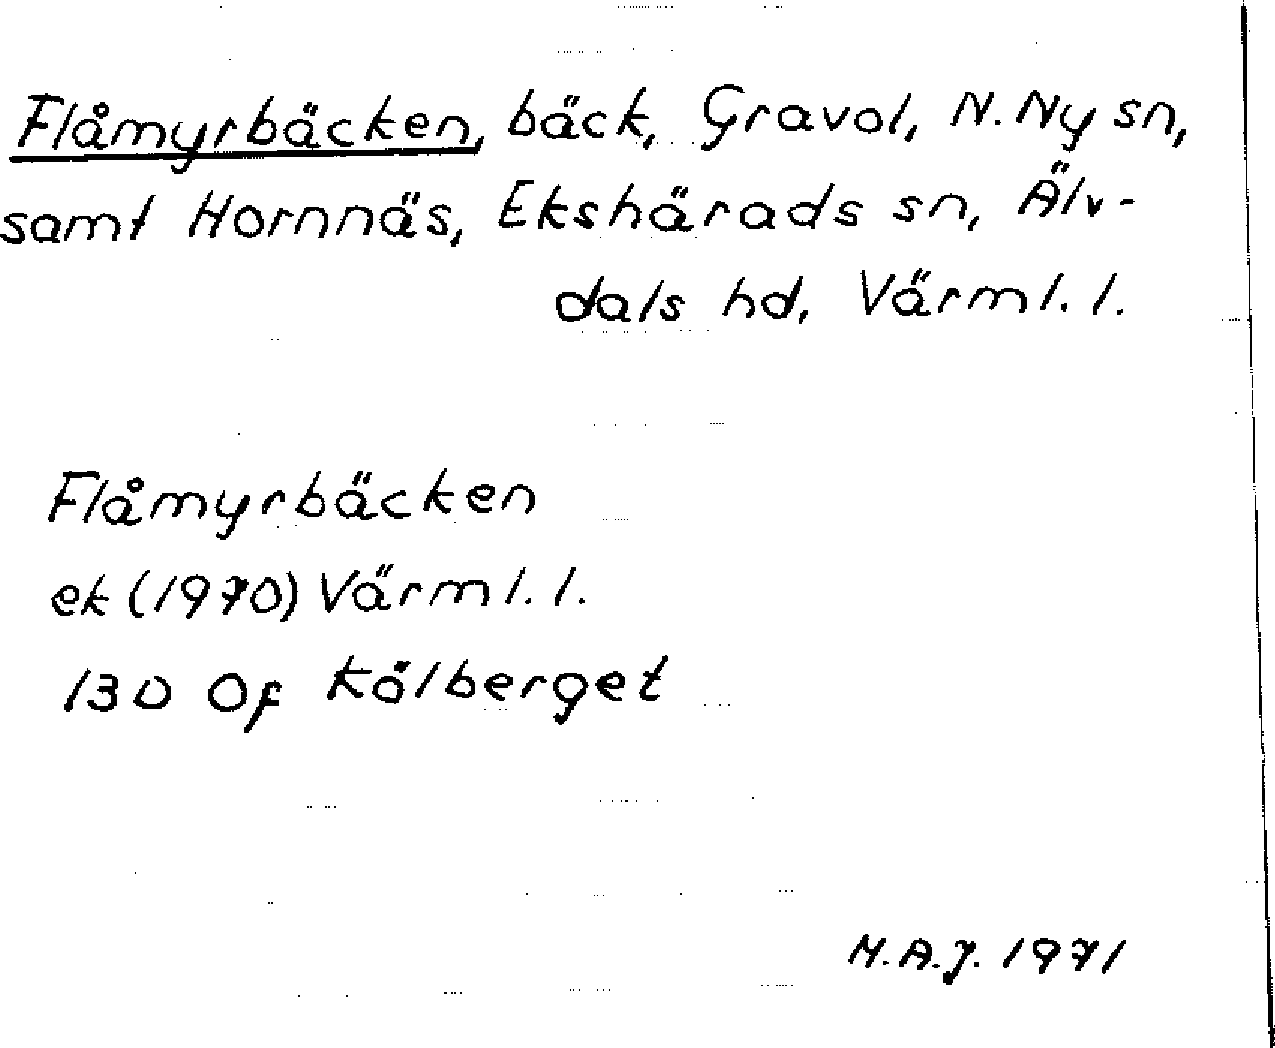 Flåmyrbäcken, bäck, Gravol, N. Ny sn,
samt Hornnäs, Ekshärads sn, Älv-
dals hd, Värml. l.
Flåmyrbäcken
ek (1970) Värml. l.
130 Of Kölberget
M.A.J. 1971